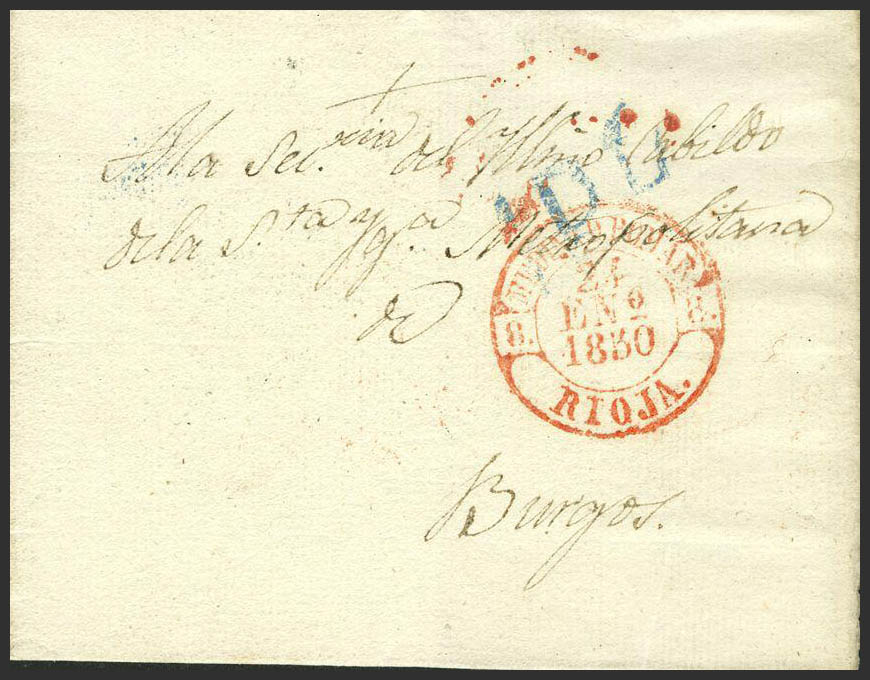 A la Sec.ria del Yllmo Cabildo
de la S.ta Yg.a Metropolitana
de
Burgos.
24
ENº
1850
8. 8.
RIOJA.